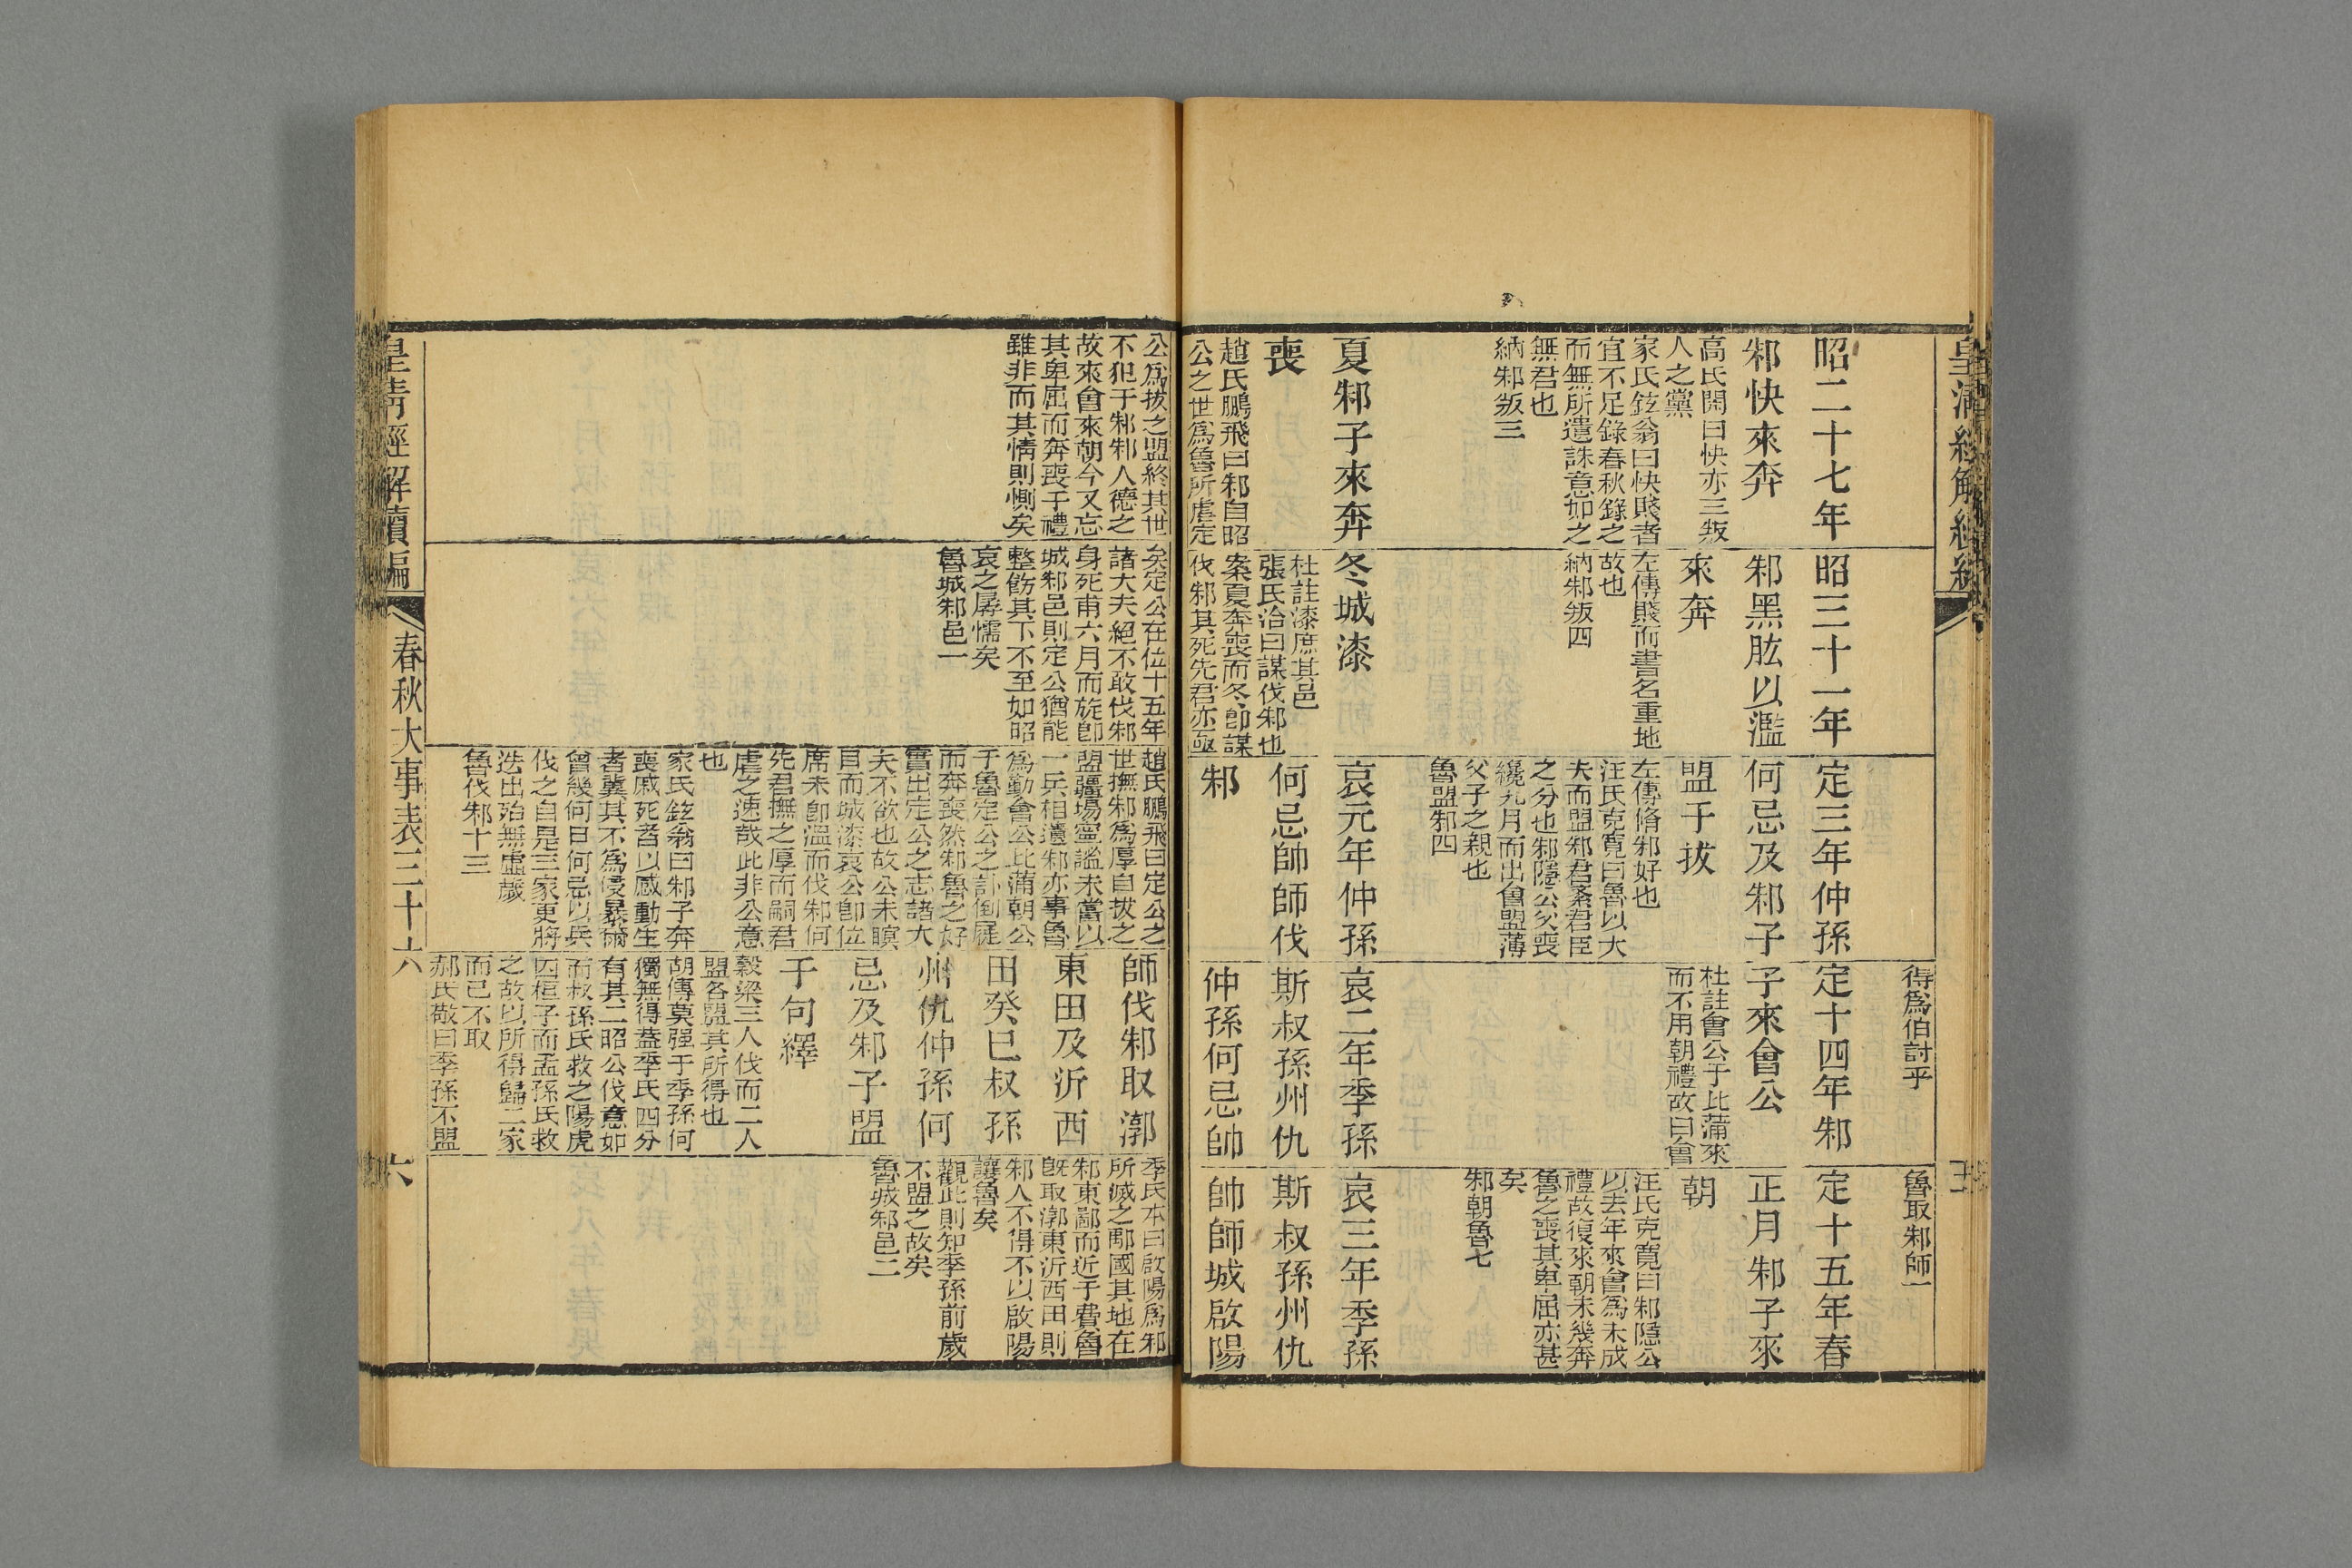 皇清經解續編
昭二十七年
邾快來奔
高氏閌曰快亦三叛
人之黨
家氏鉉翁曰快賤者
宜不足錄春秋錄之
而無所遺誅意如之
無君也
納邾叛三
夏邾子來奔
喪
趙氏鵬飛曰邾自昭
公之世爲魯所虐定
昭三十一年
邾黑肱以濫
來奔
左傳賤而書名重地
故也
納邾叛四
冬城漆
杜註漆庶其邑
張氏洽曰謀伐邾也
案夏奔喪而冬卽謀
伐邾其死先君亦亟
定三年仲孫
何忌及邾子
盟于拔
左傳脩邾好也
汪氏克寬曰魯以大
夫而盟邾君紊君臣
之分也邾隱公父喪
纔九月而出會盟薄
父子之親也
魯盟邾四
哀元年仲孫
何忌帥師伐
邾
得爲伯討乎
定十四年邾
子來會公
杜註會公于比蒲來
而不用朝禮故曰會
哀二年季孫
斯叔孫州仇
仲孫何忌帥
魯取邾師一
定十五年春
正月邾子來
朝
汪氏克寬曰邾隱公
以去年來會爲未成
禮故復來朝未幾奔
魯之喪其卑屈亦甚
矣
邾朝魯七
哀三年季孫
斯叔孫州仇
帥師城啟陽
公爲拔之盟終其世
不犯于邾邾人德之
故來會來朝今又忘
其卑屈而奔喪于禮
雖非而其情則惻矣
矣定公在位十五年
諸大夫絕不敢伐邾
身死甫六月而旋卽
城邾邑則定公猶能
整飭其下不至如昭
哀之孱懦矣
魯城邾邑一
趙氏鵬飛曰定公之
世撫邾爲厚自拔之
盟疆埸寧謐未嘗以
一兵相遺邾亦事魯
爲勤會公比蒲朝公
于魯定公之訃倒屣
而奔喪然邾魯之好
實出定公之志諸大
夫不欲也故公未瞑
目而城漆哀公卽位
席未卽溫而伐邾何
先君撫之厚而嗣君
虐之速哉此非公意
也
家氏鉉翁曰邾子奔
喪戚死者以感動生
者冀其不爲侵暴爾
曾幾何日何忌以兵
伐之自是三家更將
迭出殆無虛歲
魯伐邾十三
師伐邾取漷
東田及沂西
田癸巳叔孫
州仇仲孫何
忌及邾子盟
于句繹
穀梁三人伐而二人
盟各盟其所得也
胡傳莫强于季孫何
獨無得蓋季氏四分
有其二昭公伐意如
而叔孫氏救之陽虎
囚桓子而孟孫氏救
之故以所得歸二家
而己不取
郝氏敬曰季孫不盟
季氏本曰啟陽爲邾
所滅之鄅國其地在
邾東鄙而近于費魯
旣取漷東沂西田則
邾人不得不以啟陽
讓魯矣
觀此則知季孫前歲
不盟之故矣
魯城邾邑二
皇淸經解續編
春秋大事表三十六
六